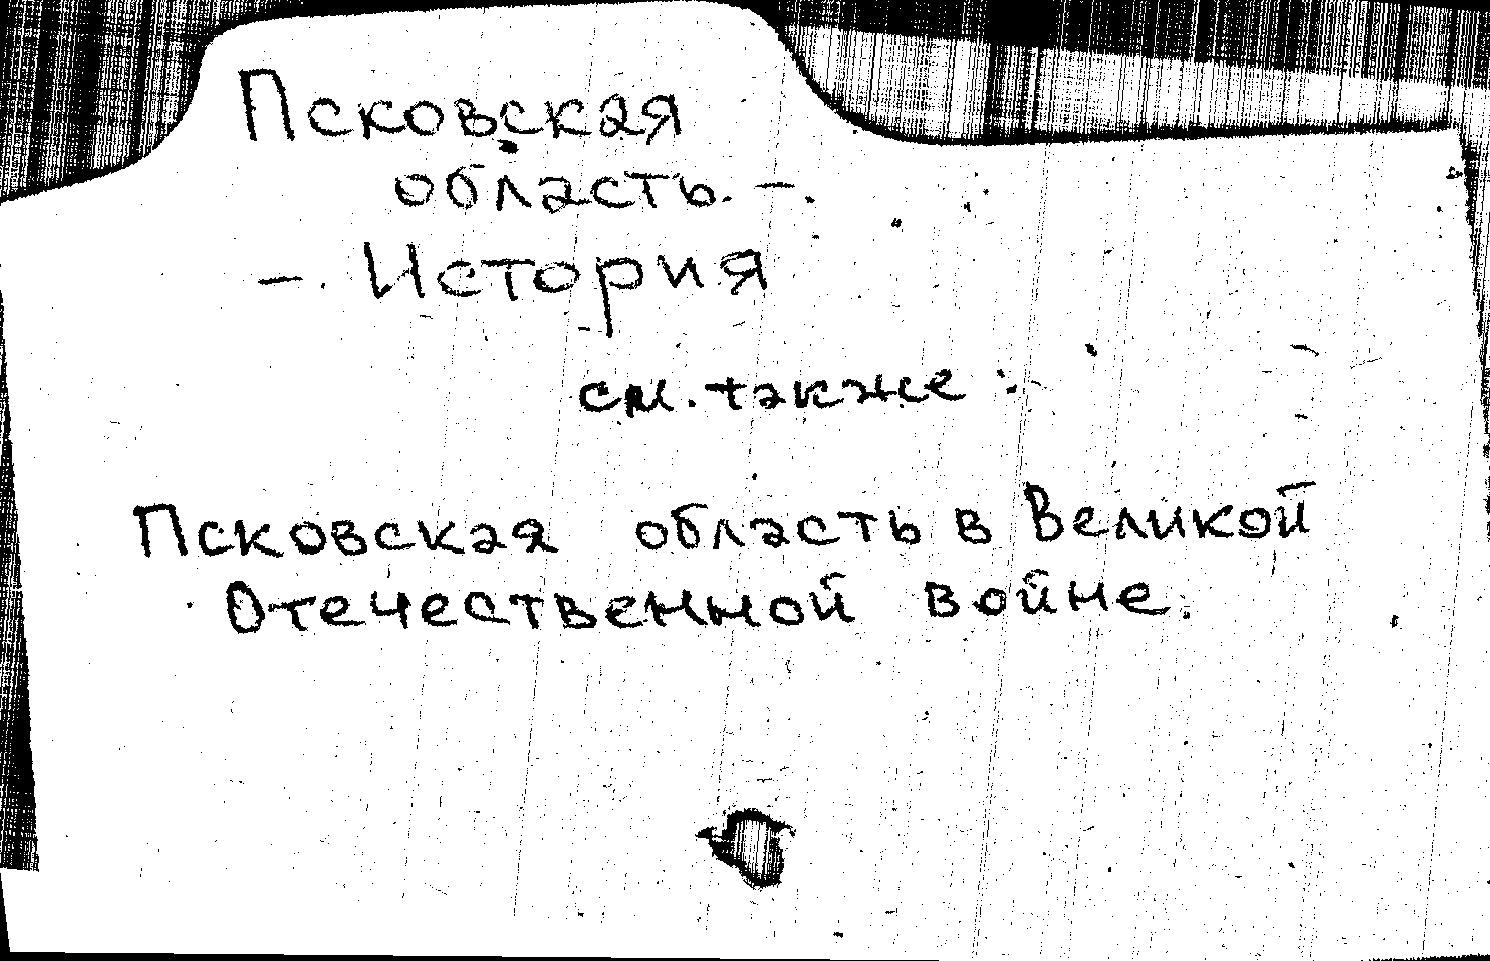 Псковская
область. –
– История
см. также:
Псковская область в Великой
Отечественной войне.